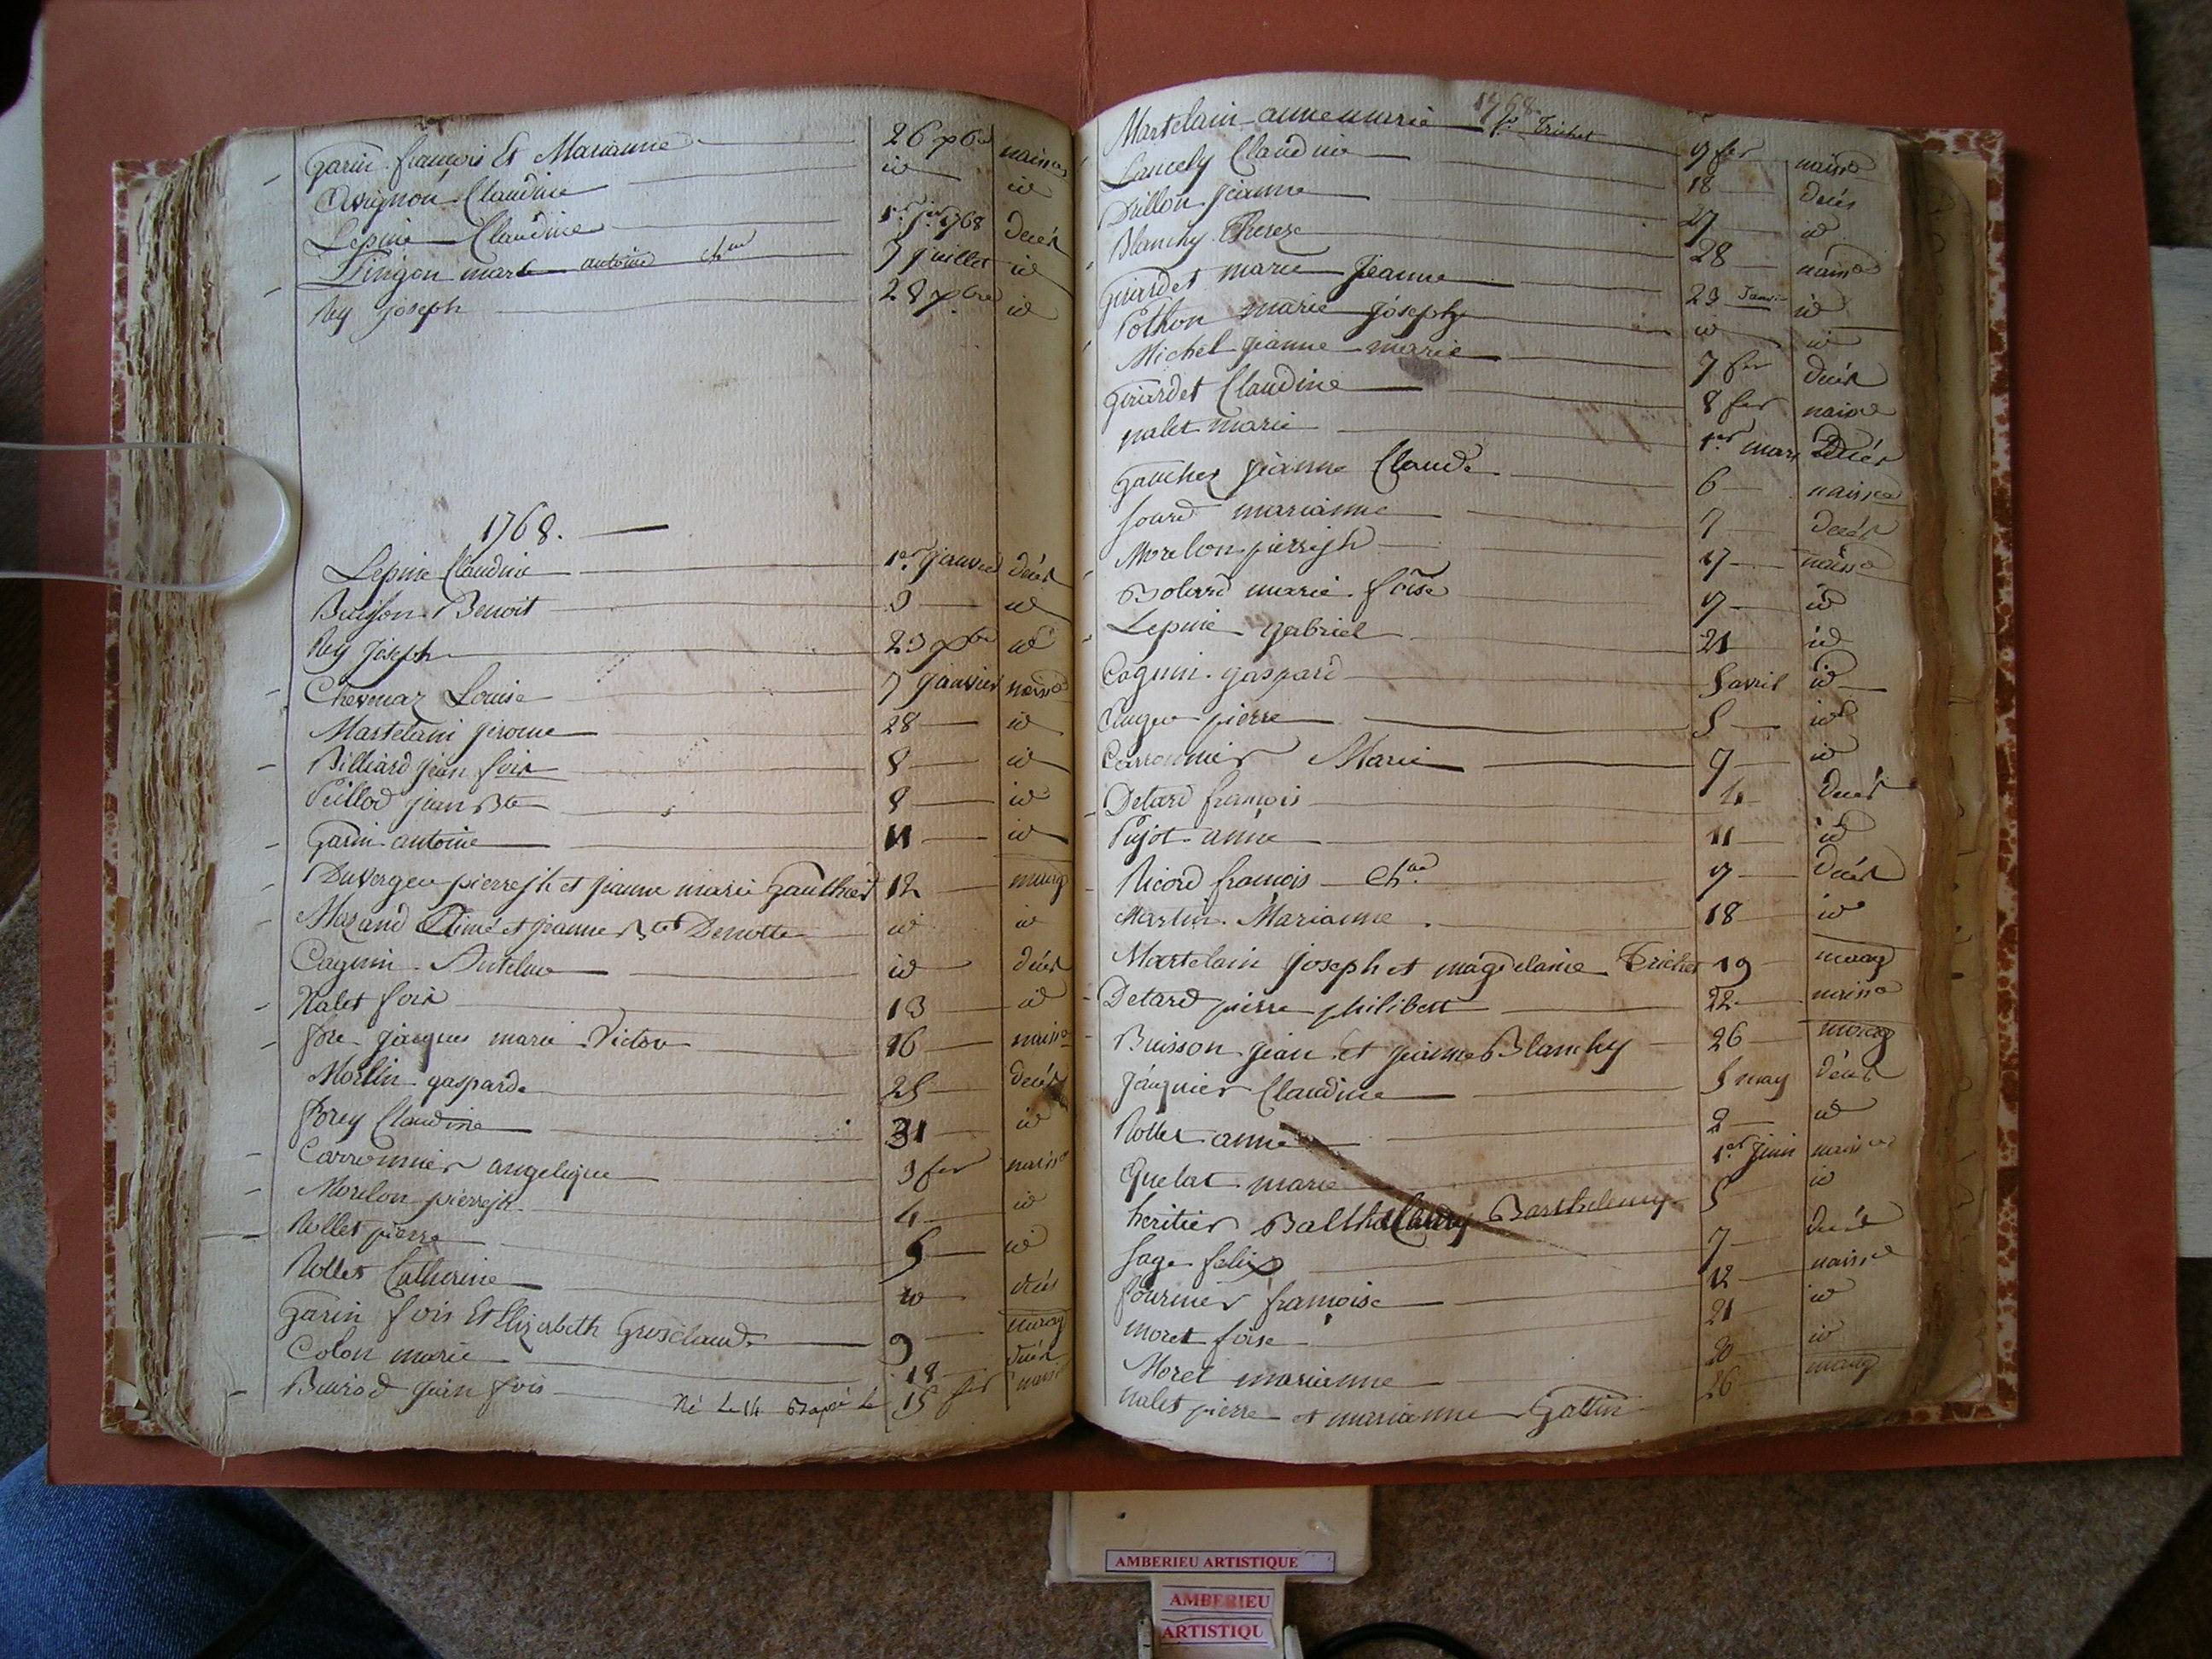 Garin françois Et Marianne 26 xbre naissce
Avignon Claudine id id
Lepine Claudine 1er jer 1768 decés
Lingon marc antoine 7 juillet id
Rey joseph 28 xbre id
1768.
Lepine Claudine 1er janvier decés
Buisson Benoit 3 id
Rey joseph 23 xbre id
Chevenaz Louise 7 janvier naissce
Martelain jerome 28 id
Billiard jean fois 8 id
Peillod jean Bte 8 id
Garin antoine 11 id
Duverger pierre jh et jeanne marie Gauthier 12 mariag
Mazand Aimé et jeanne Bte Denotte id id
Cagnin Antelme id decés
Nalet fois 13 id
fore jacques marie Victor 16 naissce
Morlin gasparde 25 decés
Borey Claudine 31 id
Carronnier angelique 3 fer naissce
Morelon pierre jh 4 id
Rollet pierre 5 id
Rollet Catherine id decés
Garin fois Et Elizabeth Grosclaude 9 mariag
Colon marie 18 decés
Buirod jean fois Né Le 14 Bapsé Le 15 fer naiss
1768
Martelain anne marie Trichet 9 fer naissce
Lancely Claudine 18 decés
Drillon jeanne 27 id
Blanchy Therese 28 naissce
Girardet marie jeanne 23 Janv. id
Pothon marie joseph id id
Michel jeanne marie 7 fer decés
Girardet Claudine 8 fer naissce
nalet marie 1er mars Decés
Gaucher jeanne Claude 6 naissce
sourd marianne 7 decés
Morelon pierre jh 17 naissce
Bolard marie foise 9 id
Lepine gabriel 21 id
Cagnin gaspard 5 avril id
Auger pierre 5 id
Carronnier Marie 9 id
Detard françois 4 decés
Pujot anne 11 id
Nicord francois 9 Decés
Martin Marianne 18 id
Martelain joseph et magdelaine Trichet 19 mariag
Detard pierre philibert 22 naissce
Buisson jean et jeanne Blanchy 26 mariag
Jaquier Claudine 5 may decés
Rollet anne 2 id
Quelat marie 1er juin naissce
heritier Balthalamy Barthelemy 5 id
Sage felix 7 decés
fournier françoise 12 naissce
moret foise 21 id
Morel marianne 20 id
nalet pierre et marianne Gallin 26 mariag
AMBERIEU ARTISTIQUE
AMBERIEU
ARTISTIQU